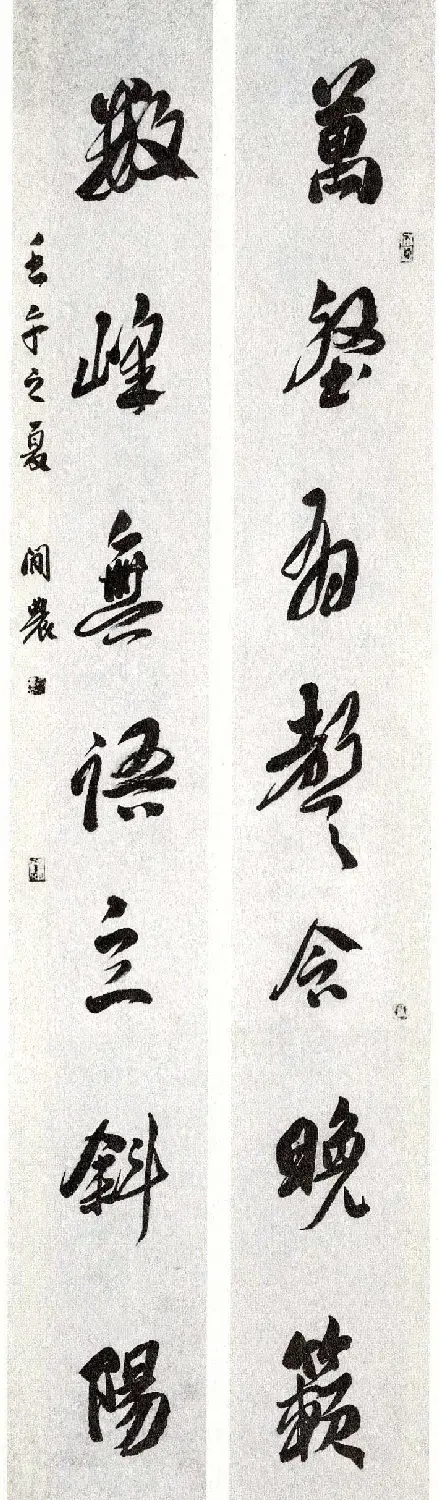 萬壑有聲含晚籟
數峰無語立斜陽
壬午之夏 閒農